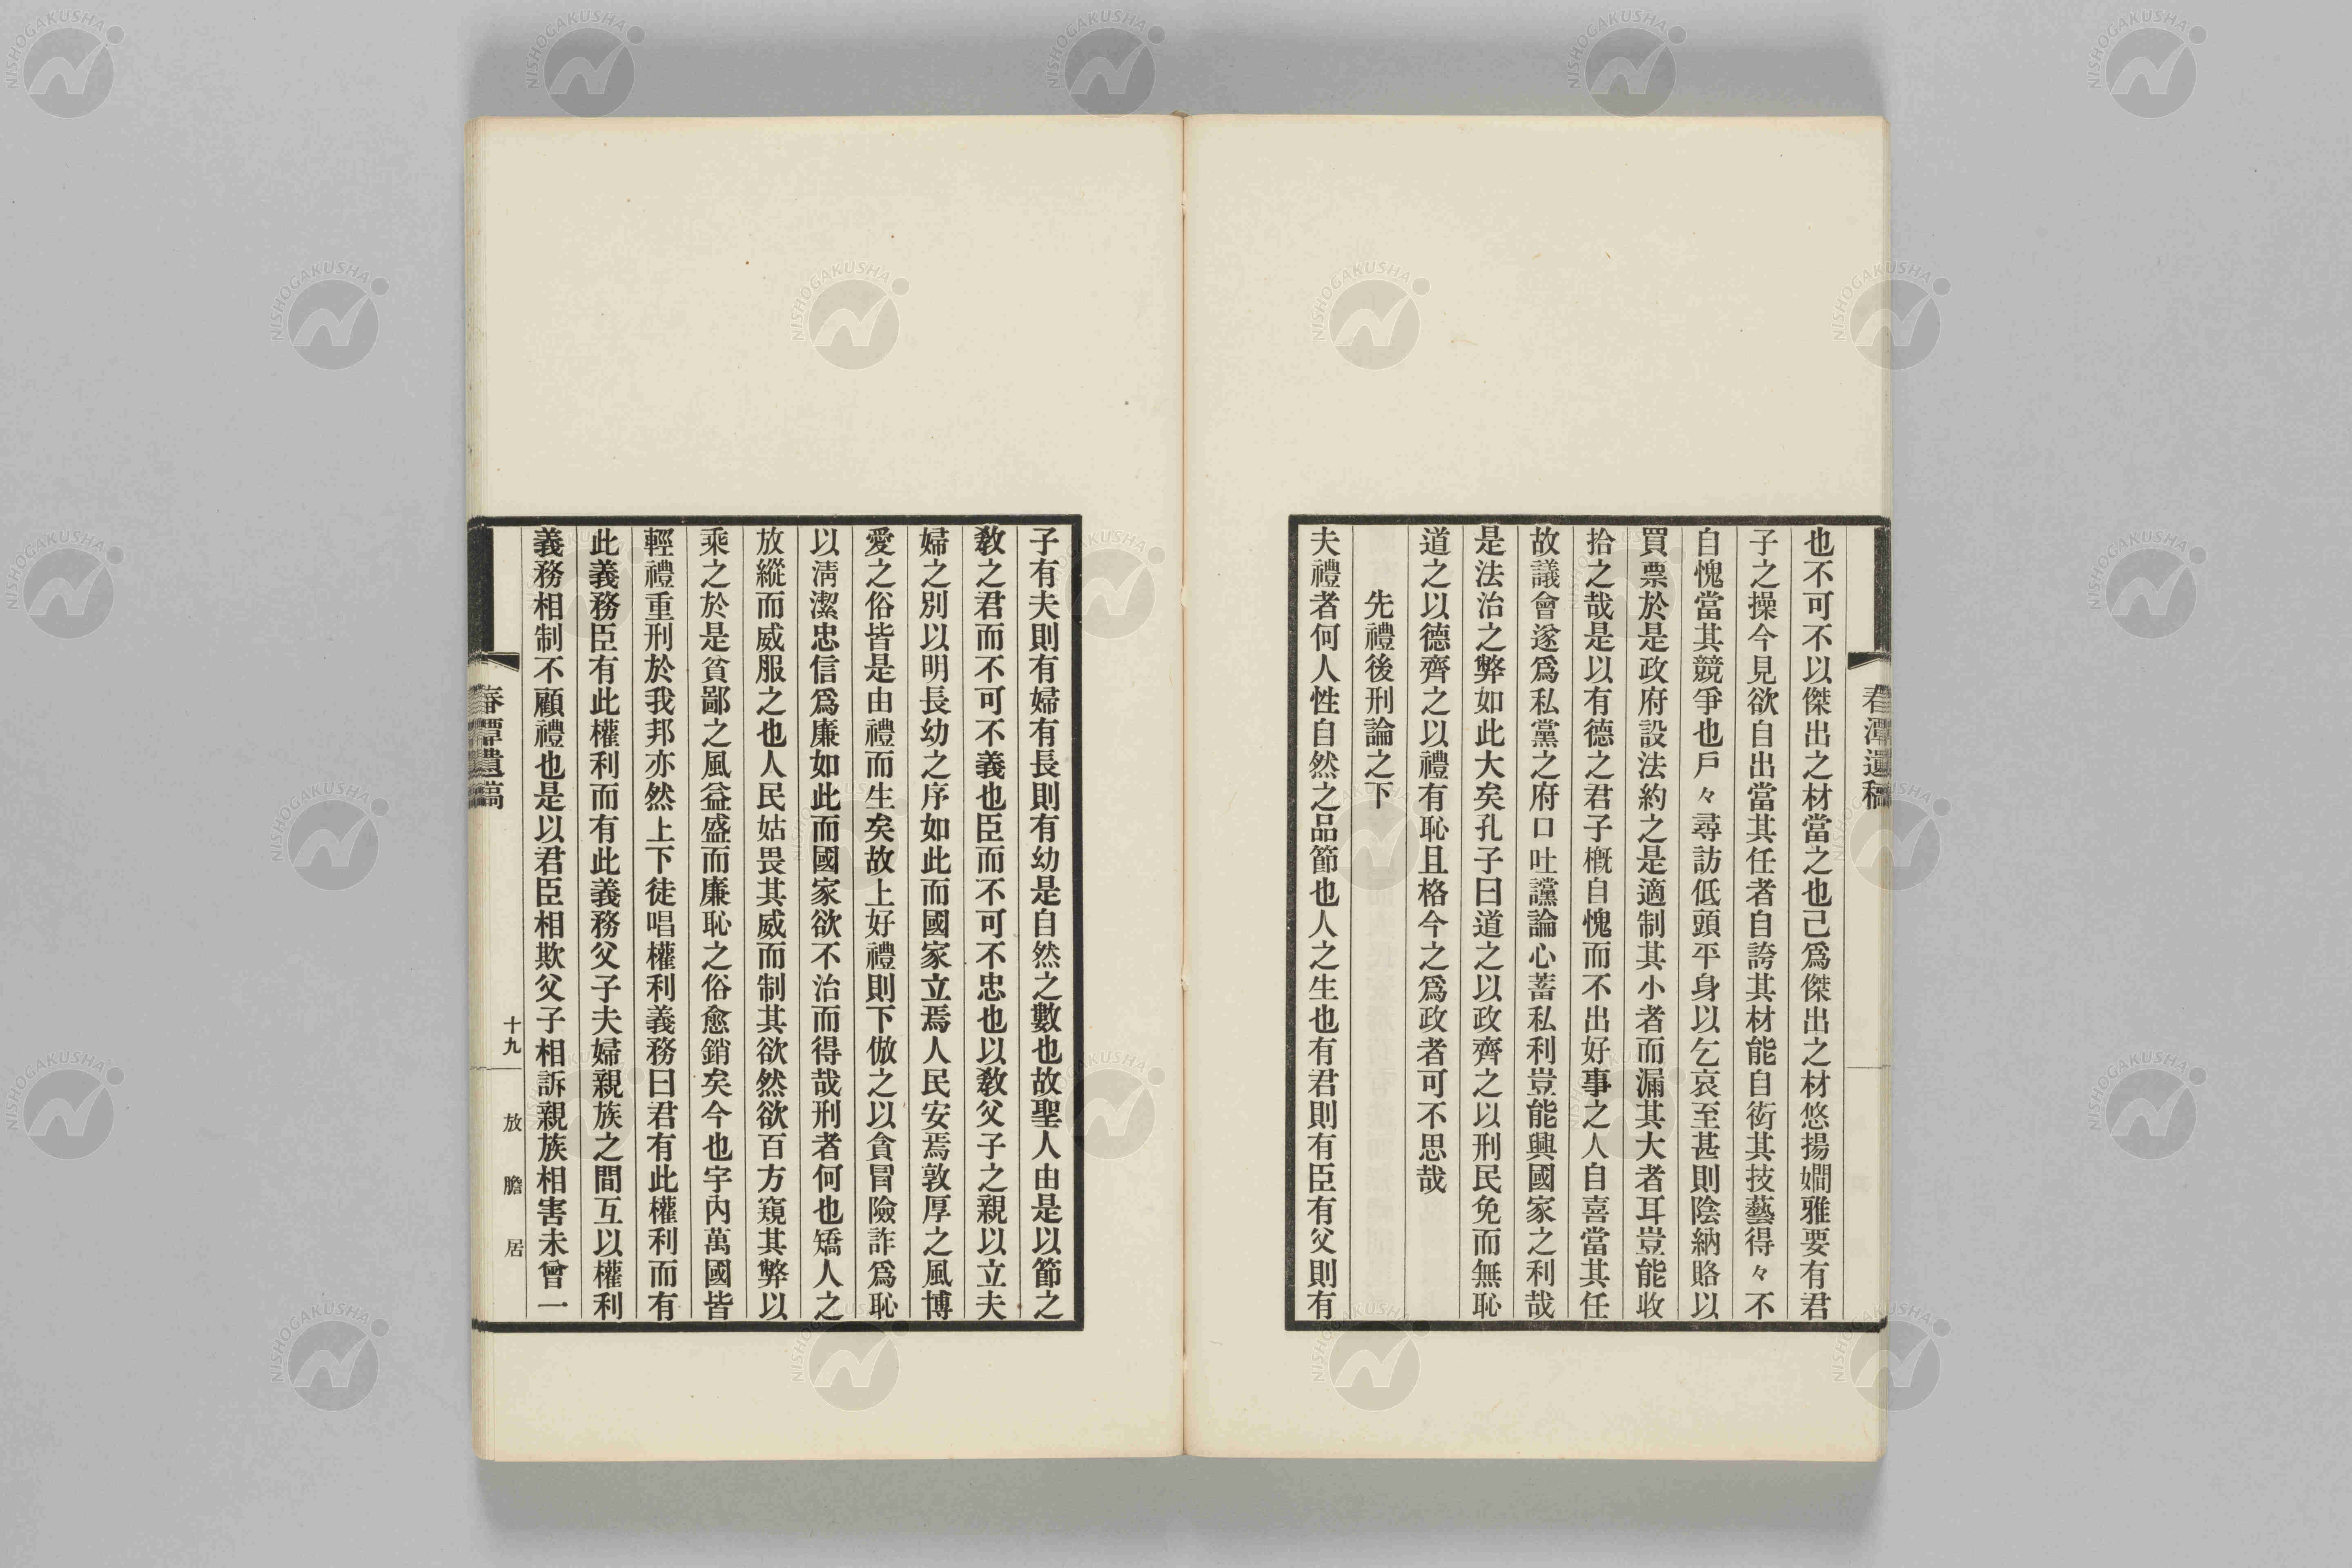 春潭遺稿
也不可不以傑出之材當之也己爲傑出之材悠揚嫺雅要有君
子之操今見欲自出當其任者自誇其材能自衒其技藝得々不
自愧當其競爭也戶々尋訪低頭平身以乞哀至甚則陰納賂以
買票於是政府設法約之是適制其小者而漏其大者耳豈能收
拾之哉是以有德之君子概自愧而不出好事之人自喜當其任
故議會遂爲私黨之府口吐讜論心蓄私利豈能興國家之利哉
是法治之弊如此大矣孔子曰道之以政齊之以刑民免而無恥
道之以德齊之以禮有恥且格今之爲政者可不思哉
先禮後刑論之下
夫禮者何人性自然之品節也人之生也有君則有臣有父則有
子有夫則有婦有長則有幼是自然之數也故聖人由是以節之
敎之君而不可不義也臣而不可不忠也以敎父子之親以立夫
婦之別以明長幼之序如此而國家立焉人民安焉敦厚之風博
愛之俗皆是由禮而生矣故上好禮則下倣之以貪冒險詐爲恥
以淸潔忠信爲廉如此而國家欲不治而得哉刑者何也矯人之
放縱而威服之也人民姑畏其威而制其欲然欲百方窺其弊以
乘之於是貧鄙之風益盛而廉恥之俗愈銷矣今也宇內萬國皆
輕禮重刑於我邦亦然上下徒唱權利義務曰君有此權利而有
此義務臣有此權利而有此義務父子夫婦親族之間互以權利
義務相制不顧禮也是以君臣相欺父子相訴親族相害未曾一
春潭遺稿
十九
放膽居
NISHOGAKUSHA